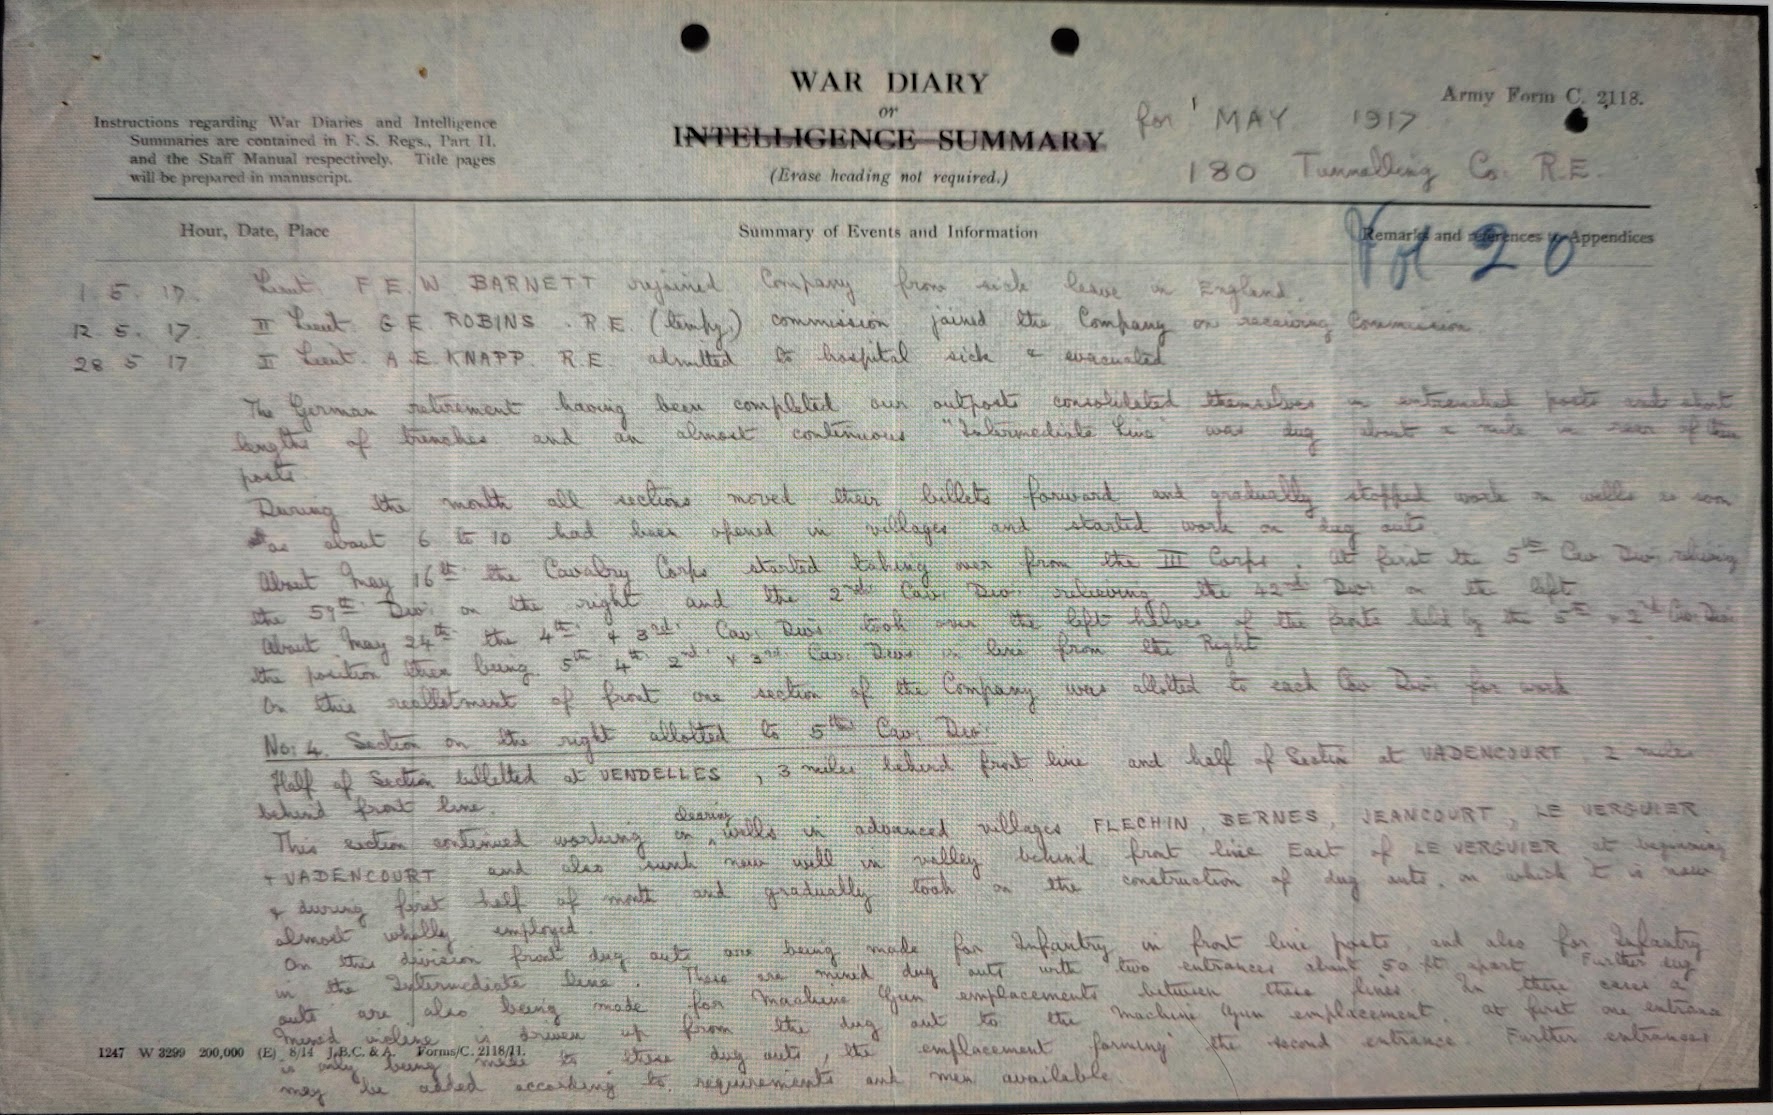 WAR DIARY
or
INTELLIGENCE SUMMARY
(Erase heading not required.)
Instructions regarding War Diaries and Intelligence
Summaries are contained in F. S. Regs., Part II.
and the Staff Manual respectively. Title pages
will be prepared in manuscript.
Army Form C. 2118.
for MAY 1917
180 Tunnelling Co. R.E.
Hour, Date, Place
Summary of Events and Information
Remarks and references to Appendices
Vol 20
1. 5. 17. Lieut. F E. W BARNETT rejoined Company from sick leave in England.
12. 5. 17. II Lieut. G E. ROBINS. R E. (tempy.) commission joined the Company on receiving Commission.
28 5 17 II Lieut. A. E. KNAPP. R. E. admitted to hospital sick & evacuated
The German retirement having been completed our outposts consolidated themselves in entrenched posts and short
lengths of trenches and an almost continuous "Intermediate Line" was dug about a mile in rear of these
posts
During the month all sections moved their billets forward and gradually stopped work on wells as soon
as about 6 to 10 had been opened in villages and started work on dug outs.
About May 16th the Cavalry Corps started taking over from the III Corps. At first the 5th Cav. Div. relieving
the 59th Div. on the right and the 2nd Cav. Div. relieving the 42nd Div. on the left
About May 24th the 4th & 3rd Cav. Divs. took over the left halves of the fronts held by the 5th & 2nd Cav. Divs.
the position then being 5th 4th 2nd & 3rd Cav. Divs in line from the Right
On this reallotment of front one section of the Company was allotted to each Cav Div. for work
No: 4. Section on the right allotted to 5th Cav. Div.
Half of Section billetted at VENDELLES, 3 miles behind front line and half of Section at VADENCOURT 2 miles
behind front line.
This section continued working on clearing wells in advanced villages FLECHIN, BERNES, JEANCOURT, LE VERGUIER
+ VADENCOURT and also sunk new well in valley behind front line East of LE VERGUIER at beginning
& during first half of month and gradually took on the construction of dug outs, on which it is now
almost wholly employed.
On this division front dug outs are being made for Infantry in front line posts, and also for Infantry
in the Intermediate line. These are mined dug outs with two entrances about 50 ft apart. Further dug
outs are also being made for Machine Gun emplacements between these lines. In these cases a
mined incline is driven up from the dug out to the Machine Gun emplacement. At first one entrance
is only being made to these dug outs, the emplacement forming the second entrance. Further entrances
may be added according to requirements and men available.
1247 W 3299 200,000 (E) 8/14 J.B.C. & A. Forms/C. 2118/11.